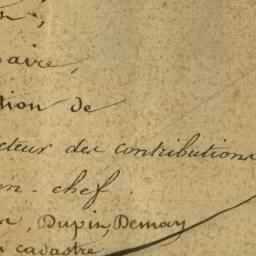 aire,
tion de
cteur des contributions
en-chef
Dupin, Demay
cadastre